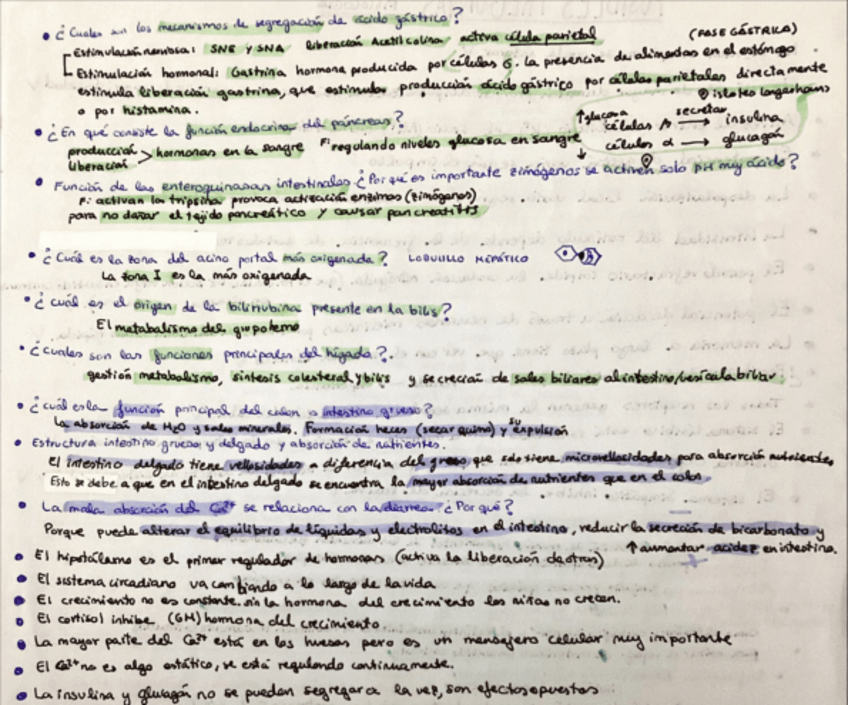 • ¿Cuales son los mecanismos de segregación de ácido gástrico?
Estimulación nerviosa: SNE y SNA liberación Acetilcolina activa célula parietal (FASE GÁSTRICA)
Estimulación hormonal: Gastrina hormona producida por células G. la presencia de alimentos en el estómago
estimula liberación gastrina, que estimula producción ácido gástrico por células parietales directamente
o por histamina.
islotes langerhans
• ¿En qué consiste la función endocrina del páncreas?
producción
liberación > hormonas en la sangre F: regulando niveles glucosa en sangre
↑glucosa células β secretar → insulina
↓ células α → glucagón
• Función de las enteroquinasas intestinales ¿Por qué es importante zimógenos se activen solo pH muy ácido?
F: activan la tripsina provoca activación enzimas (zimógenos)
para no dañar el tejido pancreático y causar pancreatitis
• ¿Cuál es la zona del acino portal más oxigenada? LOBULILLO HEPÁTICO
La zona I es la más oxigenada
• ¿cuál es el origen de la bilirrubina presente en la bilis?
El metabolismo del grupo hemo
• ¿cuales son las funciones principales del hígado?
gestión metabolismo, síntesis colesterol y bilis y secreción de sales biliares al intestino/vesícula biliar.
• ¿cuál es la función principal del colon o intestino grueso?
La absorción de H2O y sales minerales. Formación heces (secar quimo) y su expulsión
• Estructura intestino grueso y delgado y absorción de nutrientes.
El intestino delgado tiene vellosidades a diferencia del grueso, que solo tiene microvellocidades para absorción nutrientes,
Esto se debe a que en el intestino delgado se encuentra la mayor absorción de nutrientes que en el colon
• La mala absorción del Ca2+ se relaciona con la diarrea ¿Por qué?
Porque puede alterar el equilibrio de líquidos y electrolitos en el intestino, reducir la secreción de bicarbonato y
↑ aumentar acidez en intestino.
• El hipotálamo es el primer regulador de hormonas (activa la liberación de otras)
• El sistema circadiano va cambiando a lo largo de la vida
• El crecimiento no es constante. sin la hormona del crecimiento los niños no crecen.
• El cortisol inhibe (GH) hormona del crecimiento.
• La mayor parte del Ca2+ está en los huesos pero es un mensajero celular muy importante
• El Ca2+ no es algo estático, se está regulando continuamente.
• La insulina y glucagón no se pueden segregar a la vez, son efectos opuestos